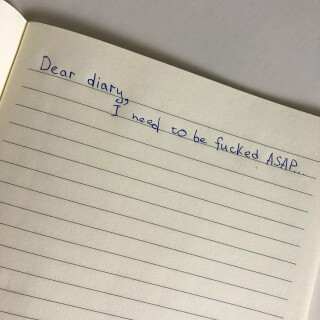 Dear diary,
I need to be fucked ASAP...